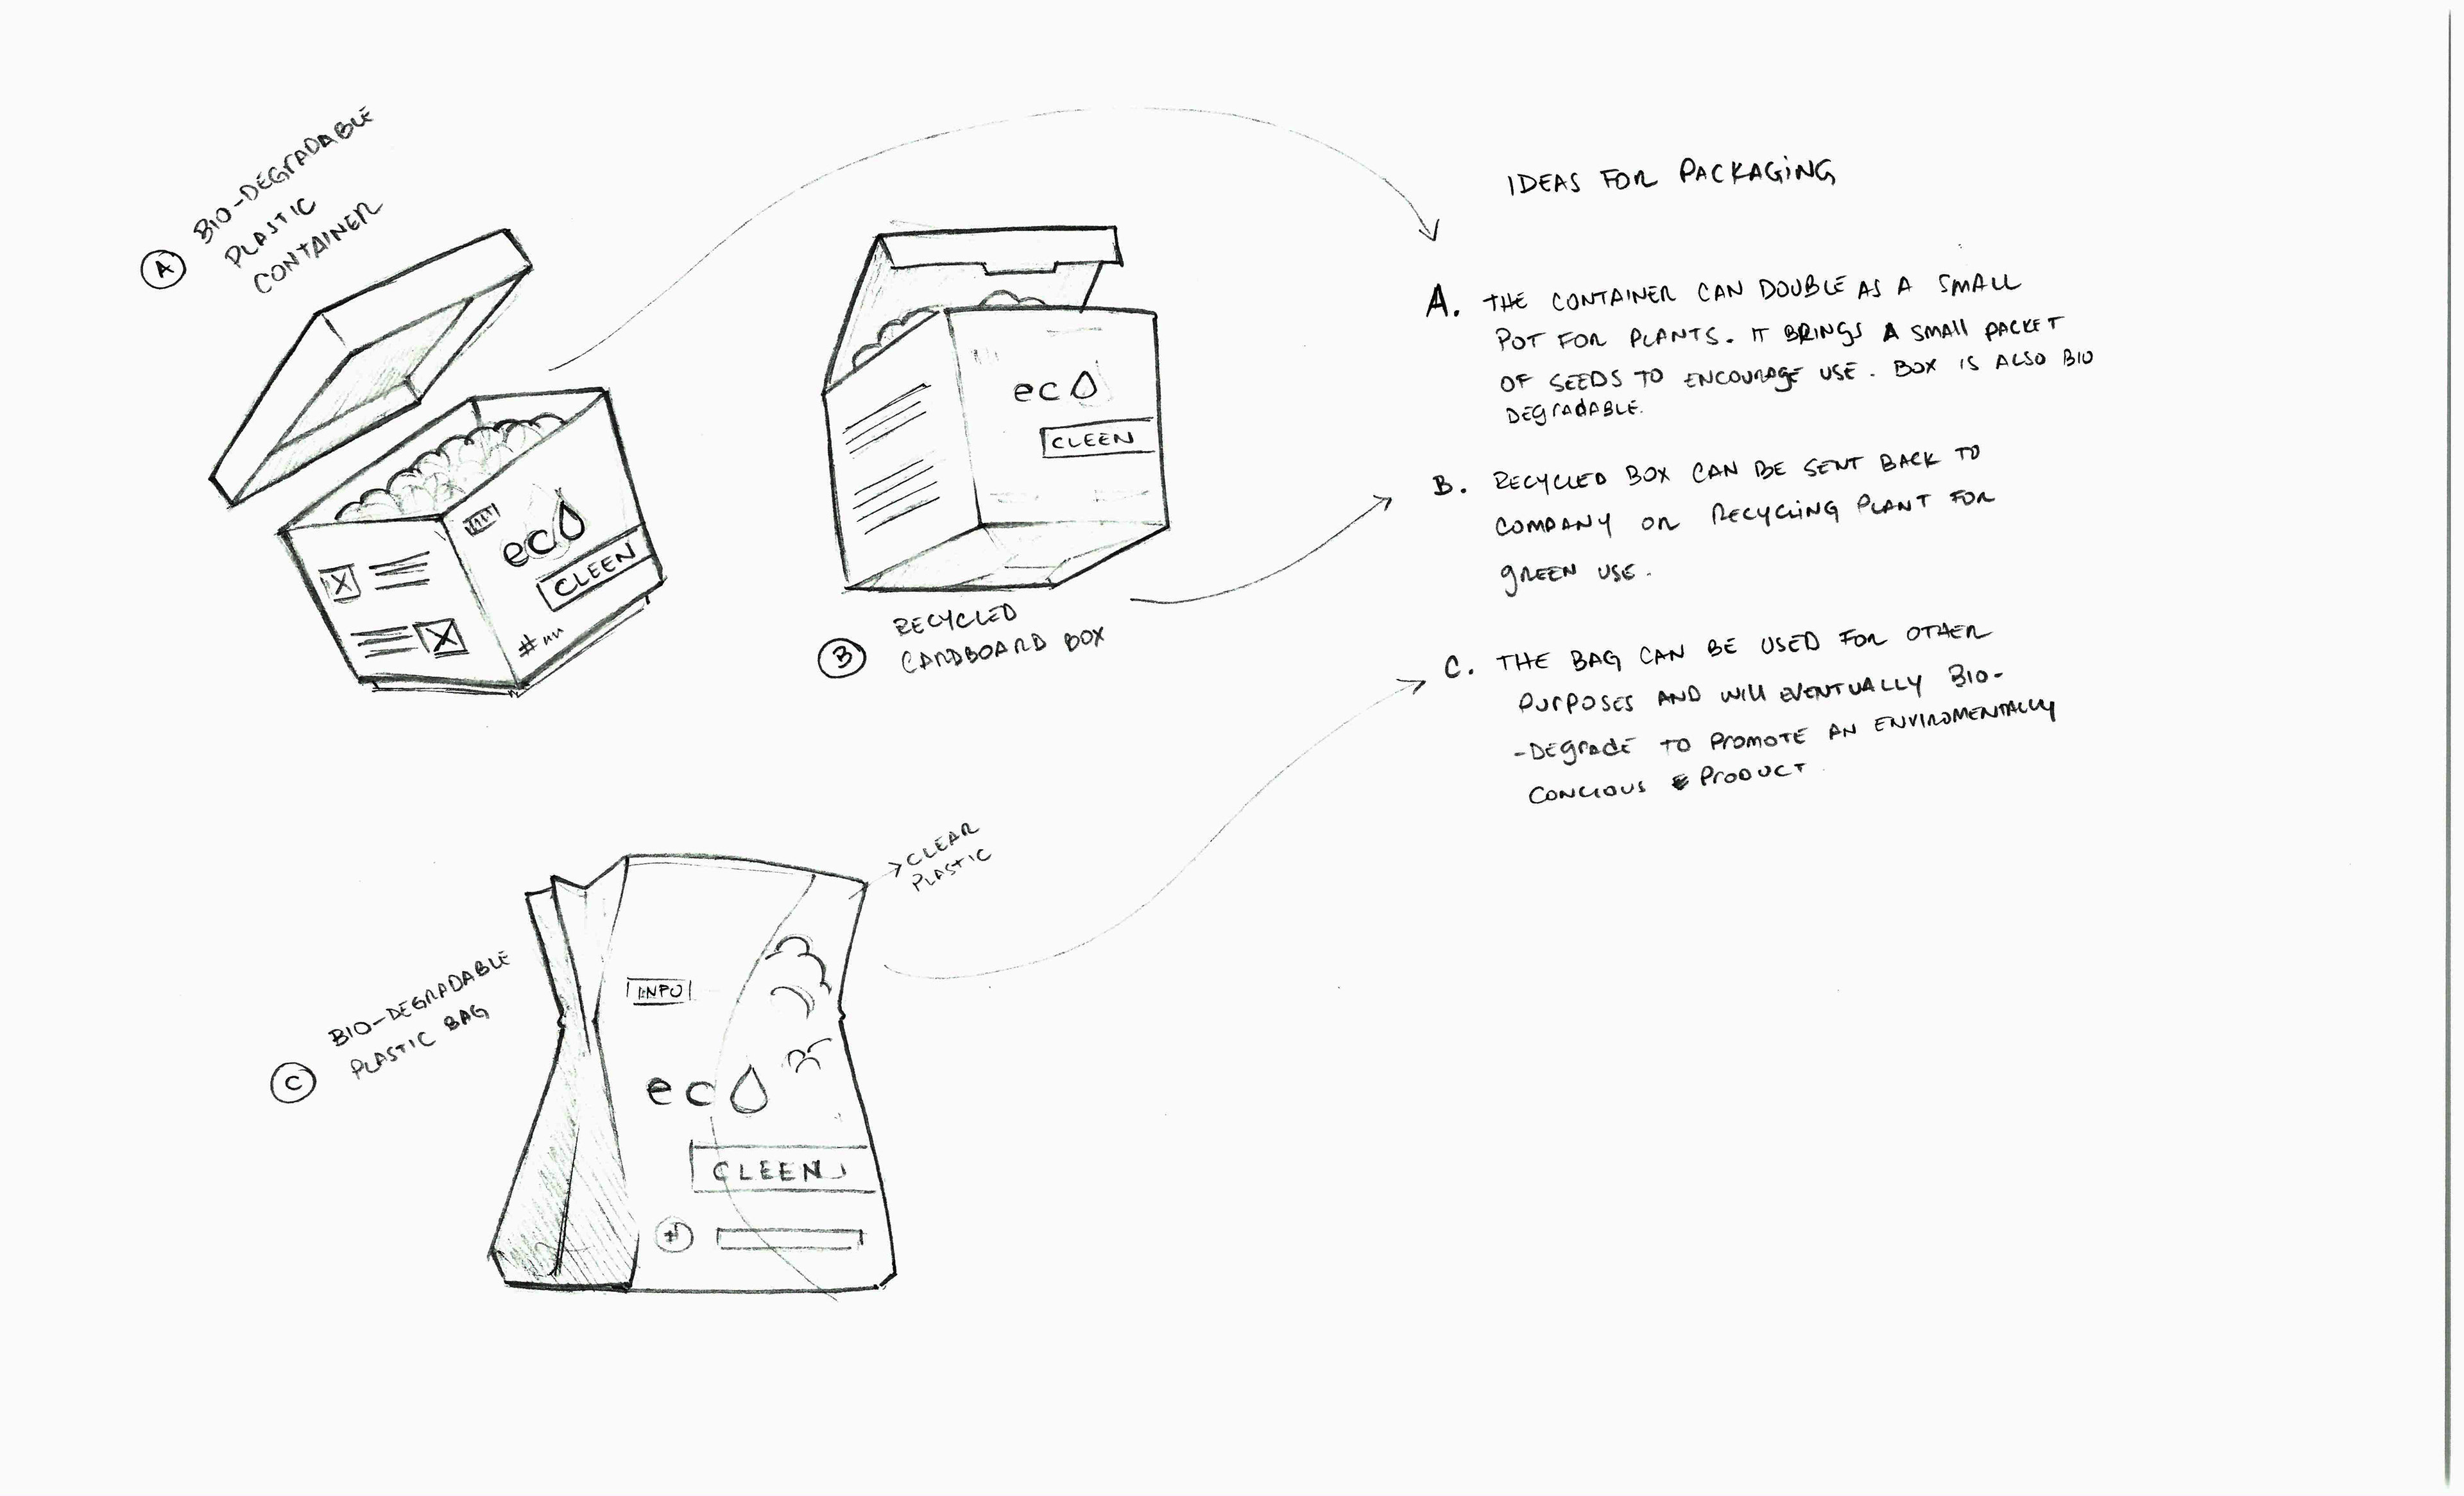 A
BIO-DEGRADABLE
PLASTIC
CONTAINER
eco
CLEEN
#
eco
CLEEN
B
RECYCLED
CARDBOARD BOX
CLEAR
PLASTIC
C
BIO-DEGRADABLE
PLASTIC BAG
INFO
eco
CLEEN
#
IDEAS FOR PACKAGING
A. THE CONTAINER CAN DOUBLE AS A SMALL
POT FOR PLANTS. IT BRINGS A SMALL PACKET
OF SEEDS TO ENCOURAGE USE. BOX IS ALSO BIO
DEGRADABLE.
B. RECYCLED BOX CAN BE SENT BACK TO
COMPANY OR RECYCLING PLANT FOR
GREEN USE.
C. THE BAG CAN BE USED FOR OTHER
PURPOSES AND WILL EVENTUALLY BIO-
-DEGRADE TO PROMOTE AN ENVIROMENTALLY
CONCIOUS PRODUCT